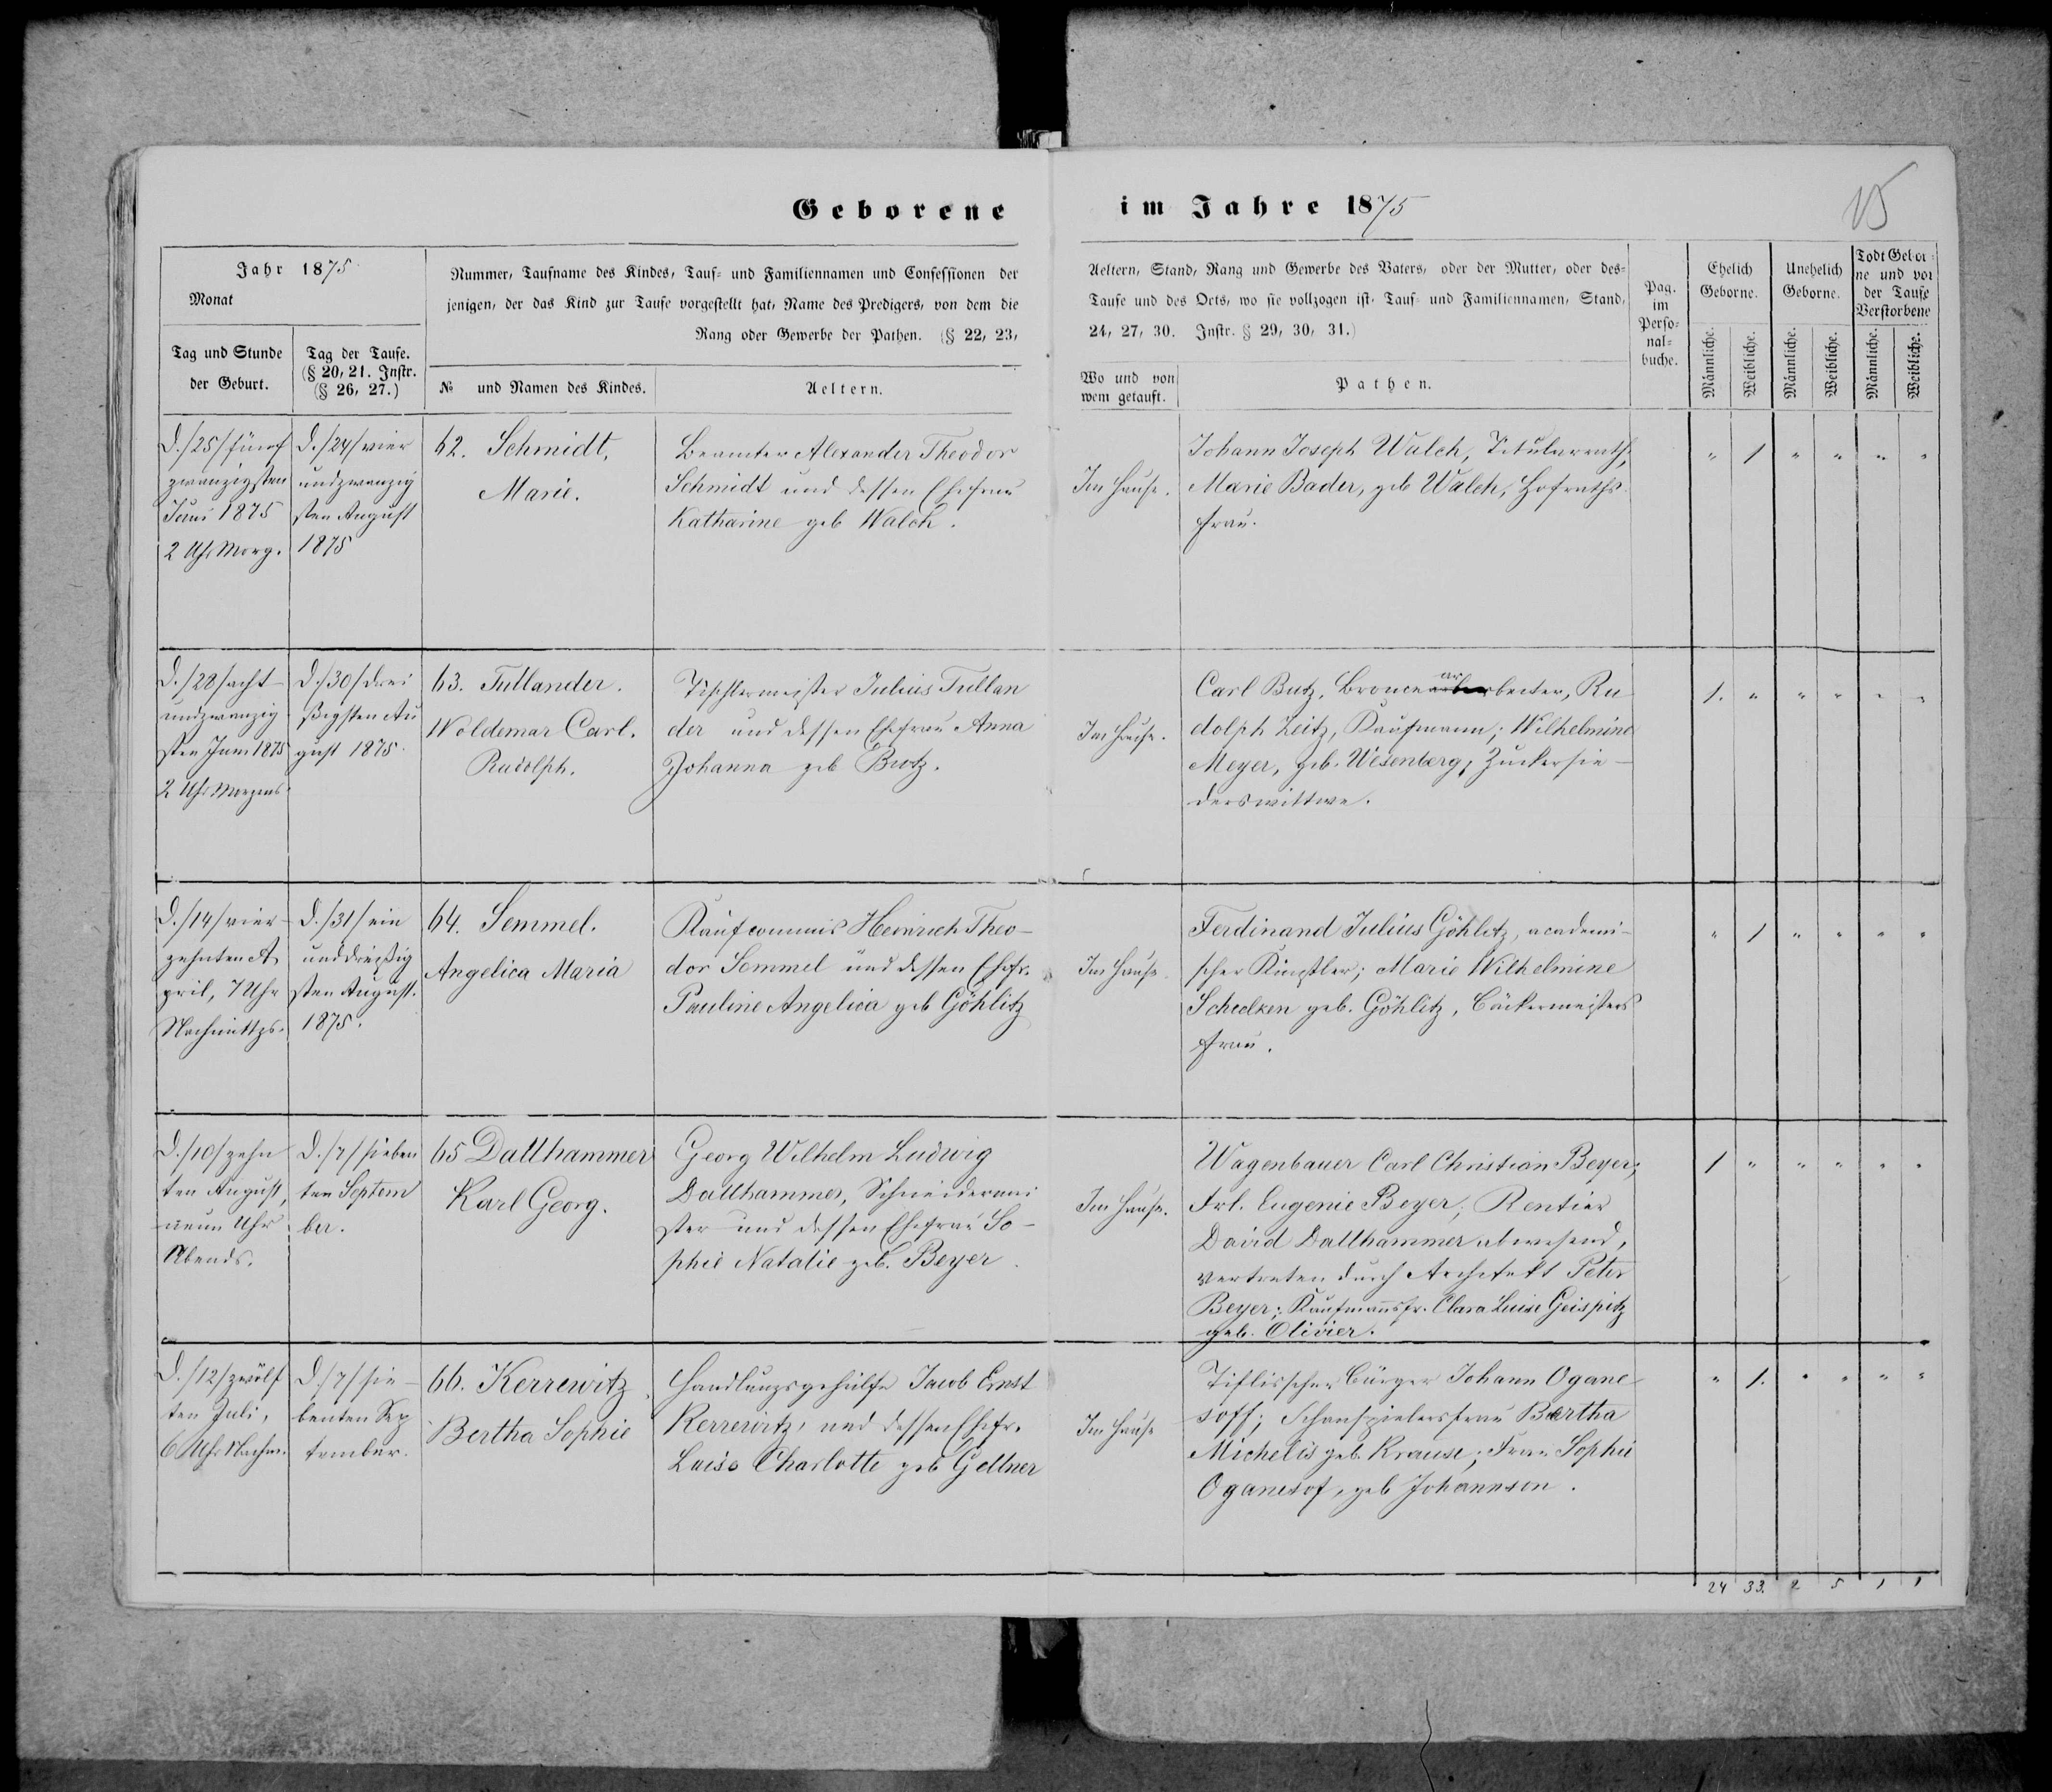 Geborene im Jahre 1875
15
Jahr 1875
Monat
Tag und Stunde
der Geburt.
Tag der Taufe.
(§ 20, 21. Instr.
(§ 26, 27.)
Nummer, Taufname des Kindes, Tauf- und Familiennamen und Confessionen der
jenigen, der das Kind zur Taufe vorgestellt hat, Name des Predigers, von dem die
Rang oder Gewerbe der Pathen. (§ 22, 23,
№ und Namen des Kindes.
Aeltern.
Aeltern, Stand, Rang und Gewerbe des Vaters, oder der Mutter, oder des-
Taufe und des Orts, wo sie vollzogen ist, Tauf- und Familiennamen, Stand,
24, 27, 30. Instr. § 29, 30, 31.)
Wo und von
wem getauft.
Pathen.
Pag.
im
Perso-
nal-
buche.
Ehelich
Geborne.
Männliche.
Weibliche.
Unehelich
Geborne.
Männliche.
Weibliche.
Todt Gebor-
ne und vor
der Taufe
Verstorbene
Männliche.
Weibliche.
D. /25/ fünf
zwanzigsten
Juni 1875
2 Uhr Morg.
D. /24/ vier
undzwanzig
sten August
1875
62. Schmidt,
Marie.
Beamter Alexander Theodor
Schmidt und dessen Ehefrau
Katharine geb Walch.
Im Hause.
Johann Joseph Walch, Titulärrath;
Marie Bader, geb Walch, Hofraths
frau.
" 1 " " " "
D. /28/ acht-
undzwanzig
sten Juni 1875
2 Uhr Morgens
D. /30/ drei
ßigsten Au
gust 1875.
63. Tullander.
Woldemar Carl.
Rudolph.
Tischlermeister Julius Tullan
der und dessen Ehefrau Anna
Johanna geb Butz.
Im Hause.
Carl Butz, Broncearbeiter, Ru
dolph Zeitz, Kaufmann; Wilhelmine
Meyer, geb. Wesenberg, Zuckersie-
derswittwe.
1. " " " " "
D. /14/ vier-
zehnten A
pril, 7 Uhr
Nachmittgs.
D. /31/ ein
unddreißig
sten August.
1875.
64. Semmel.
Angelica Maria
Kaufcommis Heinrich Theo-
dor Semmel und dessen Ehefr.
Pauline Angelica geb Göhlitz
Im Hause.
Ferdinand Julius Göhlitz, academi-
scher Künstler; Marie Wilhelmine
Schedken geb. Göhlitz, Bäckermeisters
frau.
" 1 " " " "
D. /10/ zehn
ten August,
neun Uhr
Abends.
D. /7/ sieben
ten Septem
ber.
65 Dallhammer
Karl Georg.
Georg Wilhelm Ludwig
Dallhammer, Schneidermei
ster und dessen Ehefrau So-
phie Natalie geb. Beyer.
Im Hause.
Wagenbauer Carl Christian Beyer;
Frl. Eugenie Beyer; Rentier
David Dallhammer abwesend,
vertreten durch Architekt Peter
Beyer; Kaufmannsfr. Clara Luise Geispitz
geb. Olivier.
1 " " " " "
D. /12/ zwölf
ten Juli,
6 Uhr Nachm.
D. /7/ sie-
benten Sep
tember.
66. Kerrewitz,
Bertha Sophie
Handlungsgehülfe Jacob Ernst
Kerrewitz, und dessen Ehefr.
Luise Charlotte geb Gellner
Im Hause
Tiflisscher Bürger Johann Ogane
soff; Schauspielersfrau Bertha
Michelis geb. Krause; Frau Sophie
Oganesof, geb Johannson.
" 1. " " " "
24 33. 2 5 1 1